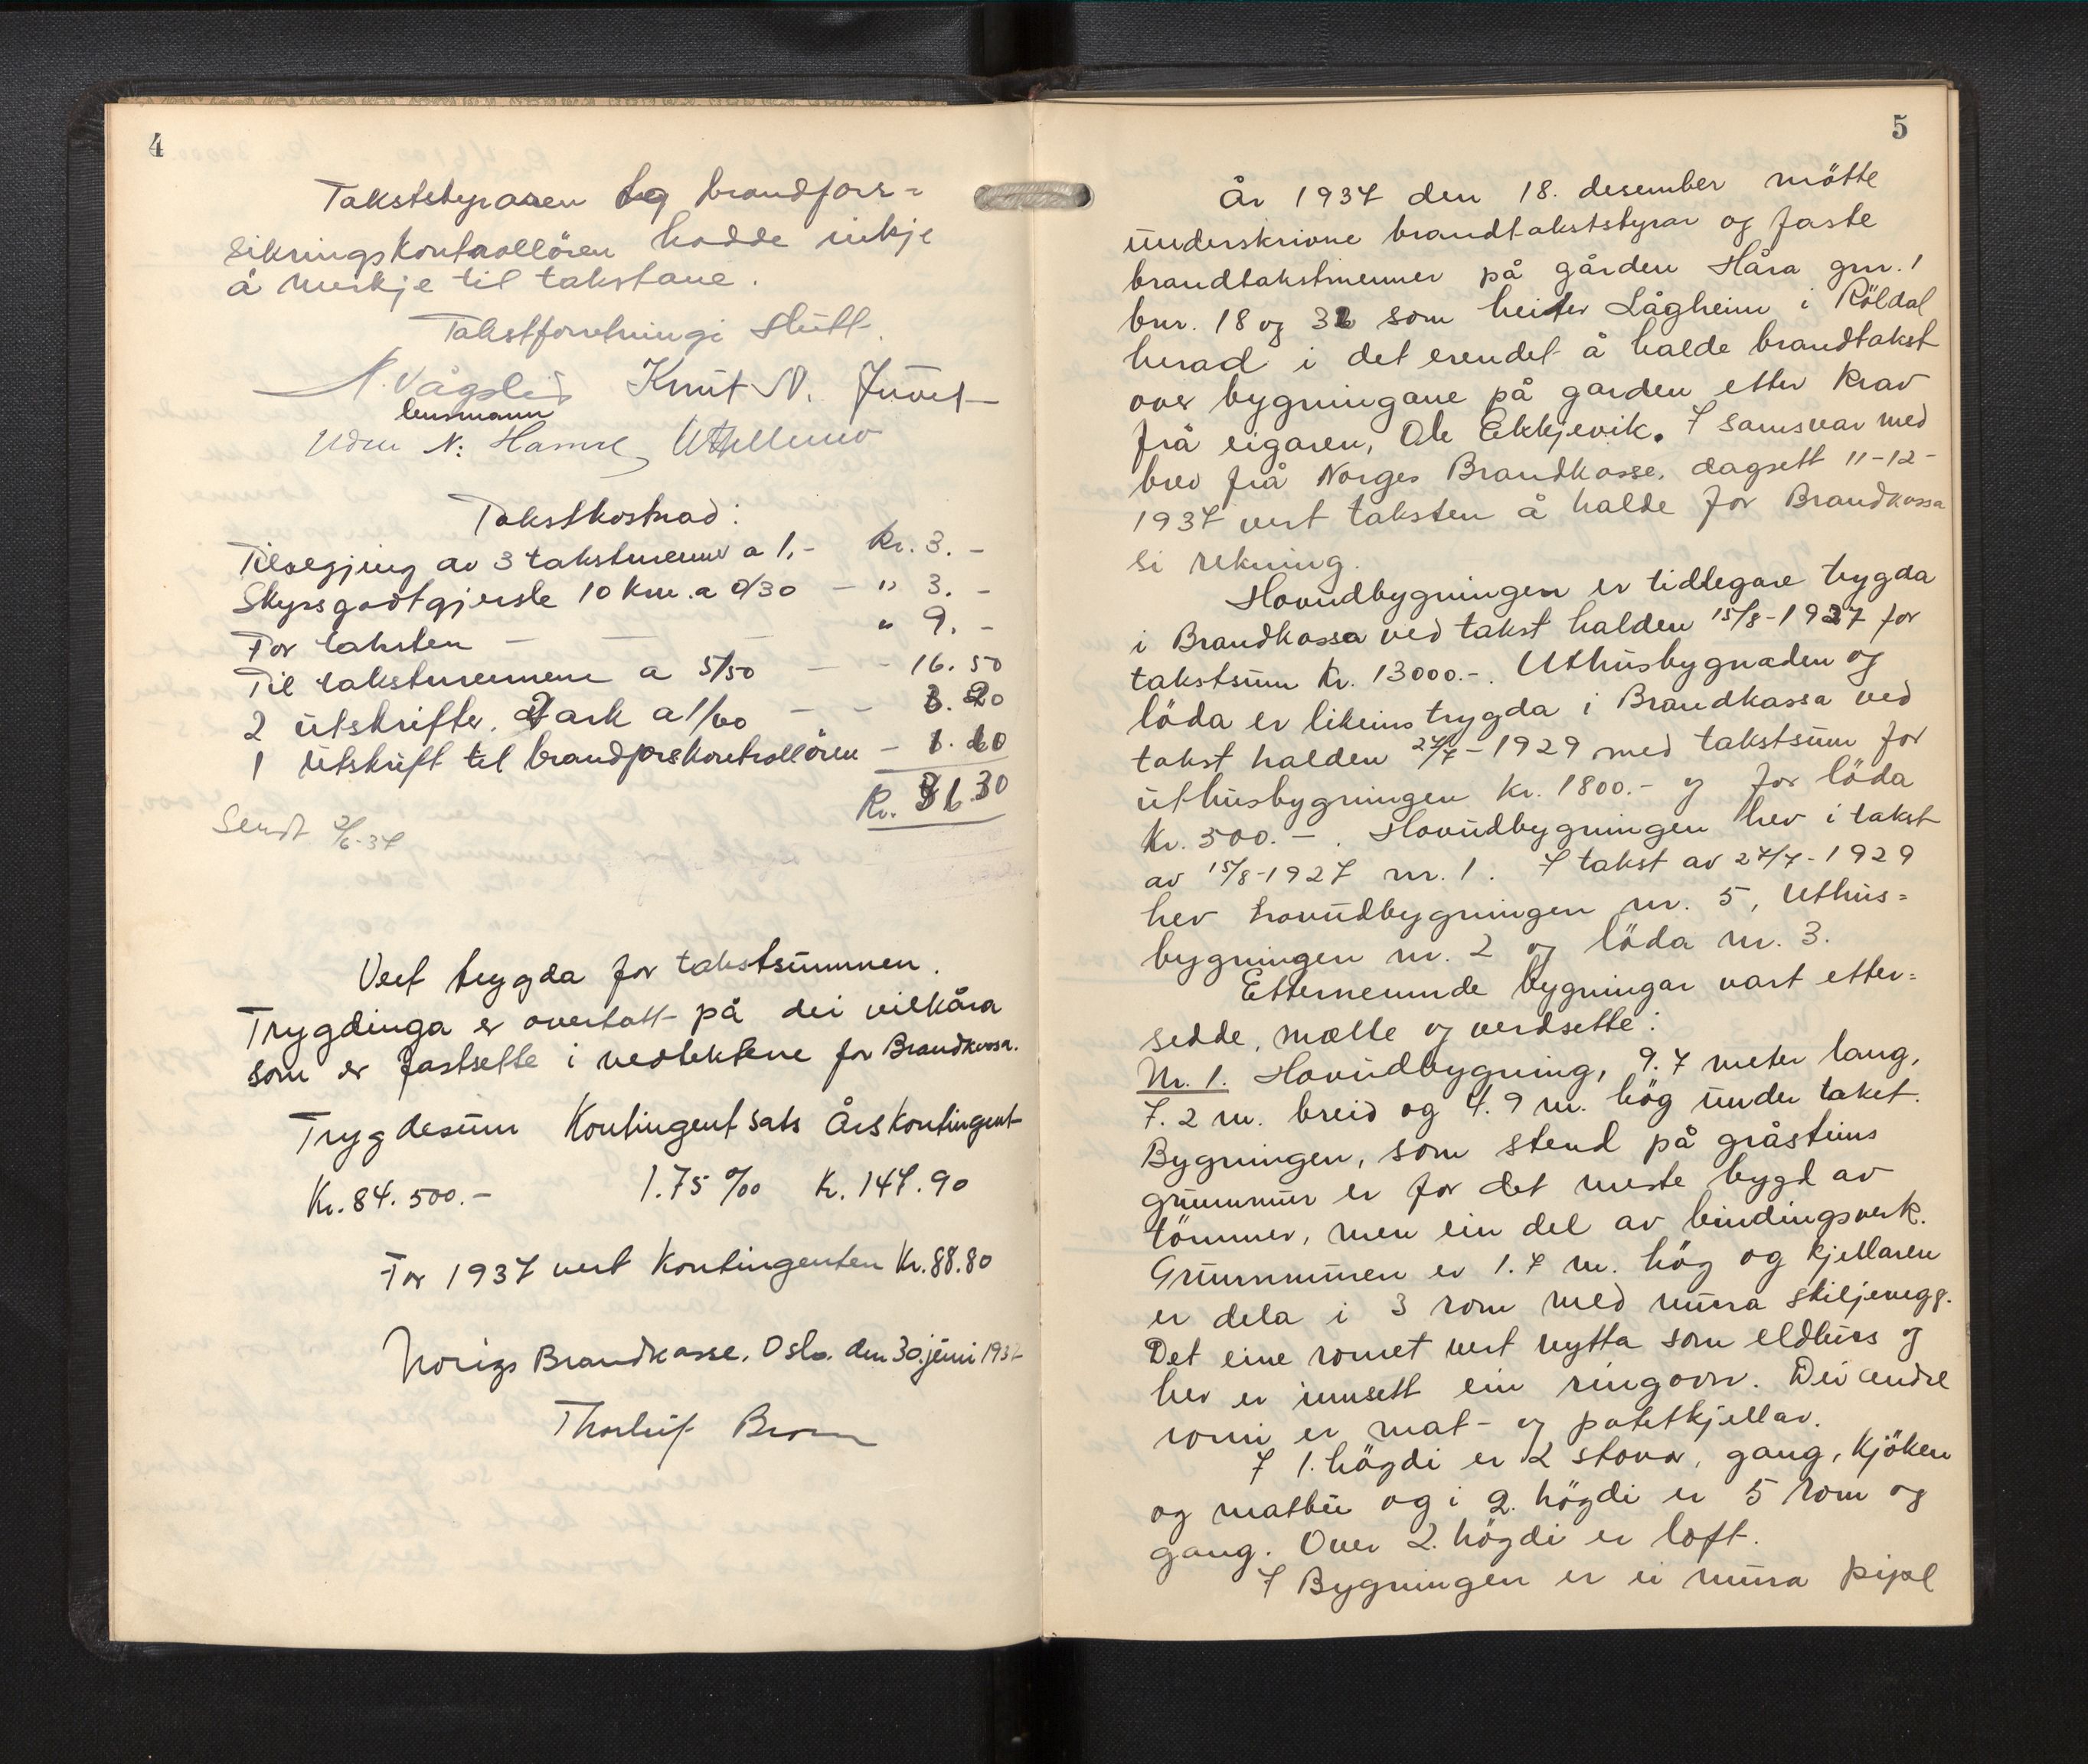 4
Takststyraren og brandfors=
sikringskontrollören hadde inkje
å merkje til takstane.
Takstforretningi Slutt.
N. Vågslid Knut N. Juvet
lensmann
N. Hamre,
Takstkostnad:
Tilsegjing av 3 takstmenner a 1,- Kr. 3. -
Skyssgodtgjersle 10 km. a 0/30 - " 3. -
For taksten - - - " 9. -
Til takstmennene a 5/50 - - 16.50
2 utskrifter. ark a 1/00 - -
1 Utskrift til brandforskontrollören -
Kr.
Sendt 2/6-37
Vert trygda for takstsummen.
Trygdinga er overtatt på dei vilkåra
som er fastsette i vedtektene for Brandkassa.
Trygdesum Kontingentsats Årskontingent
Kr. 84.500.- 1.75 ‰ Kr. 147.90
For 1937 vert Kontingenten Kr. 88.80
Norigs Brandkasse, Oslo. den 30. juni 1937
5
År 1937 den 18. desember mötte
underskrivne brandtakststyrar og faste
brandtakstmenner på gården Håra gnr. 1
bnr. 18 og som heiter Lågheim i Röldal
herad i det erendet å halde brandtakst
over bygningane på garden etter krav
frå eigaren, Ole Ekkjevik. I samsvar med
brev frå Norges Brandkasse, dagsett 11-12-
1937 vert taksten å halde for Brandkassa
si rekning.
Hovudbygningen er tidlegare trygda
i Brandkassa ved takst halden 15/8-1927 for
takstsum Kr. 13000.-. Uthusbygnaden og
löda er likeins trygda i Brandkassa ved
takst halden 27/7-1929 med takstsum for
uthusbygningen Kr. 1800.- og for löda
Kr. 500.-. Hovudbygningen hev i takst
av 15/8-1927 nr. 1. I takst av 27/7-1929
hev hovudbygningen nr. 5, Uthus=
bygningen nr. 2 og löda nr. 3.
Etternemnde bygningar vart etter=
sedde, mælte og verdsette:
Nr. 1. Hovudbygning, 9.7 meter lang,
7.2 m. breid og 4.9 m. hög under taket.
Bygningen, som stend på gråsteins
grunnmur er for det meste bygd av
tömmer, men ein del av bindingsverk.
Grunnmuren er 1.7 m. hög og kjellaren
er dela i 3 rom med mura skiljevegg.
Det eine romet vert nytta som eldhus og
her er innsett ein ringovn. Dei andre
romi er mat- og potetkjellar.
I 1. högdi er 2 stova, gang, kjöken
og matbu og i 2. högdi er 5 rom og
gang. Over 2. högdi er loft.
I Bygningen er ei mura pipe